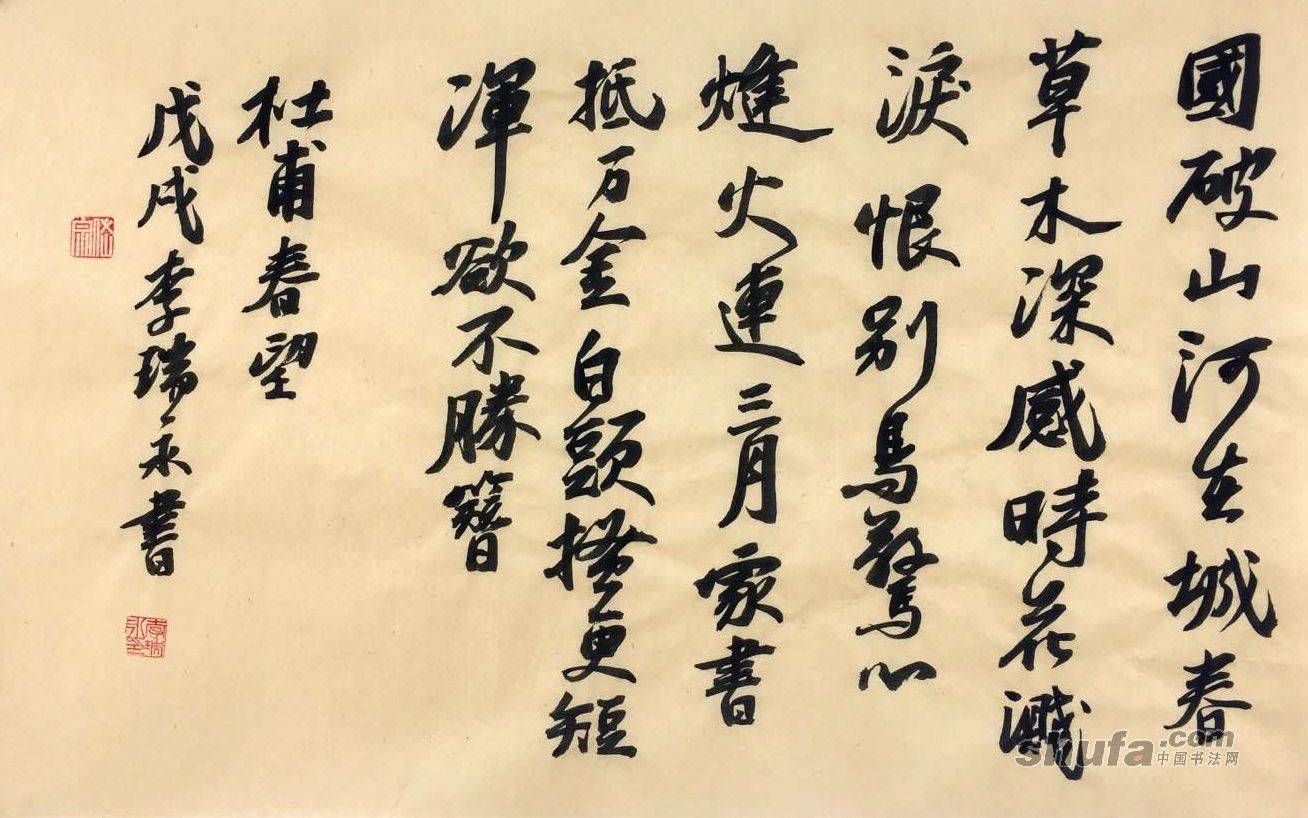 國破山河在城春
草木深感時花濺
淚恨别鳥驚心
熢火連三月家書
抵万金白頭搔更短
渾欲不勝簪
杜甫春望
戊戌李瑞永書
李瑞永印
shufa.com
中国书法网